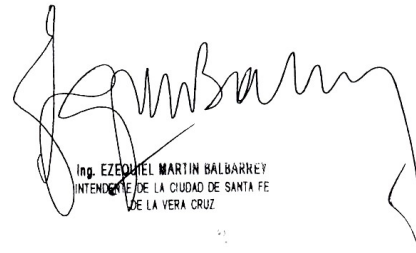 Ing. EZEQUIEL MARTIN BALBARREY
INTENDENTE DE LA CIUDAD DE SANTA FE
DE LA VERA CRUZ